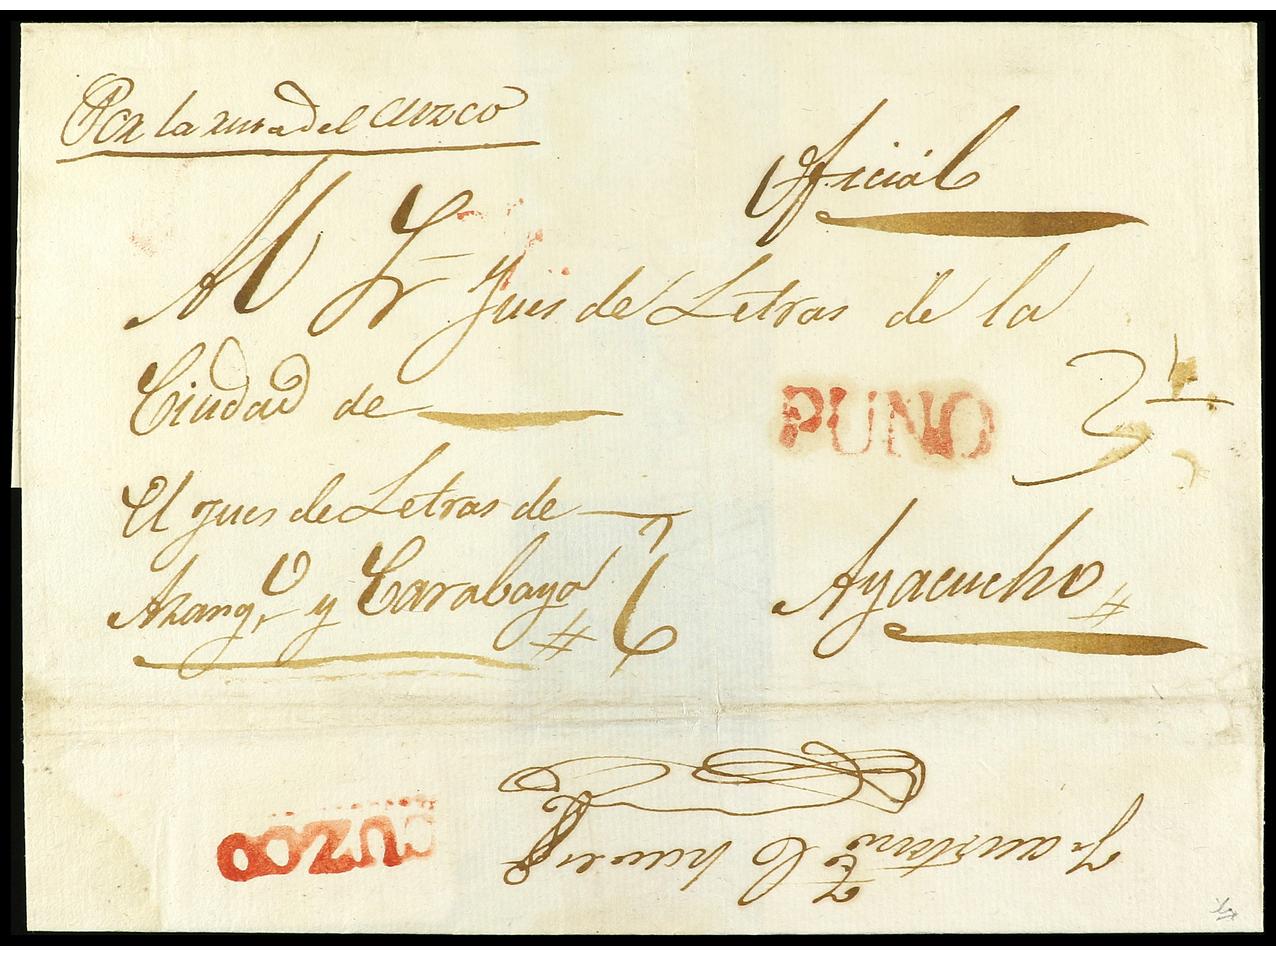 Por la ruta del Cuzco
Oficiál
Al Sr. Jues de Letras de la
Ciudad de
PUNO
3 1/
El Jues de Letras de
Azangº y Carabaya
6
Ayacucho
CUZCO